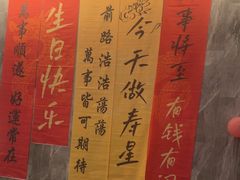 萬事順遂 好運常在
生日快乐
前路浩浩蕩蕩
萬事皆可期待
今天做寿星
事将至
有钱有